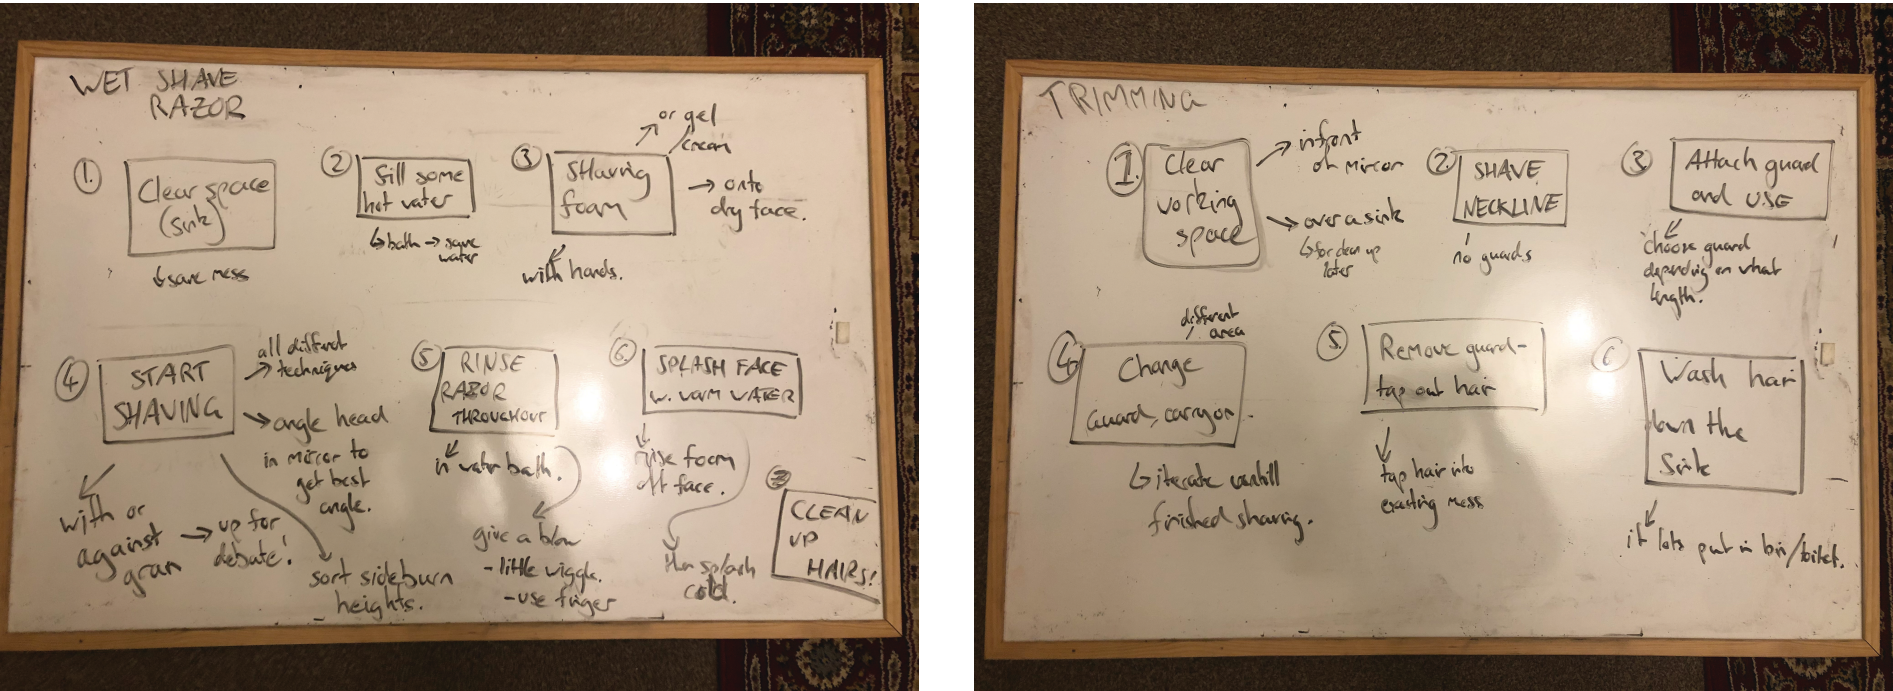 WET SHAVE
RAZOR
1.
Clear space
(sink)
↳ save mess
2
fill some
hot water
↳ bath → save
water
3
Shaving
foam
or gel
cream
→ onto
dry face.
with hands.
4
START
SHAVING
all different
techniques
→ angle head
in mirror to
get best
angle.
with or
against
gran
→ up for
debate!
sort sideburn
heights.
5
RINSE
RAZOR
THROUGHOUT
in water bath.
give a blow
- little wiggle.
- use finger
6.
SPLASH FACE
W. WARM WATER
rinse foam
off face.
then splash
cold.
7
CLEAN
UP
HAIRS!
TRIMMING
1.
Clear
working
space
→ infront
of mirror
→ over a sink
↳ for clean up
later
2.
SHAVE
NECKLINE
no guards
3
Attach guard
and USE
choose guard
depending on what
length.
4.
Change
Guard, carry on.
different
area
↳ iterate
finished shaving.
5.
Remove guard -
tap out hair
tap hair into
existing mess
6
Wash hair
down the
Sink
if lots put in bin/toilet.